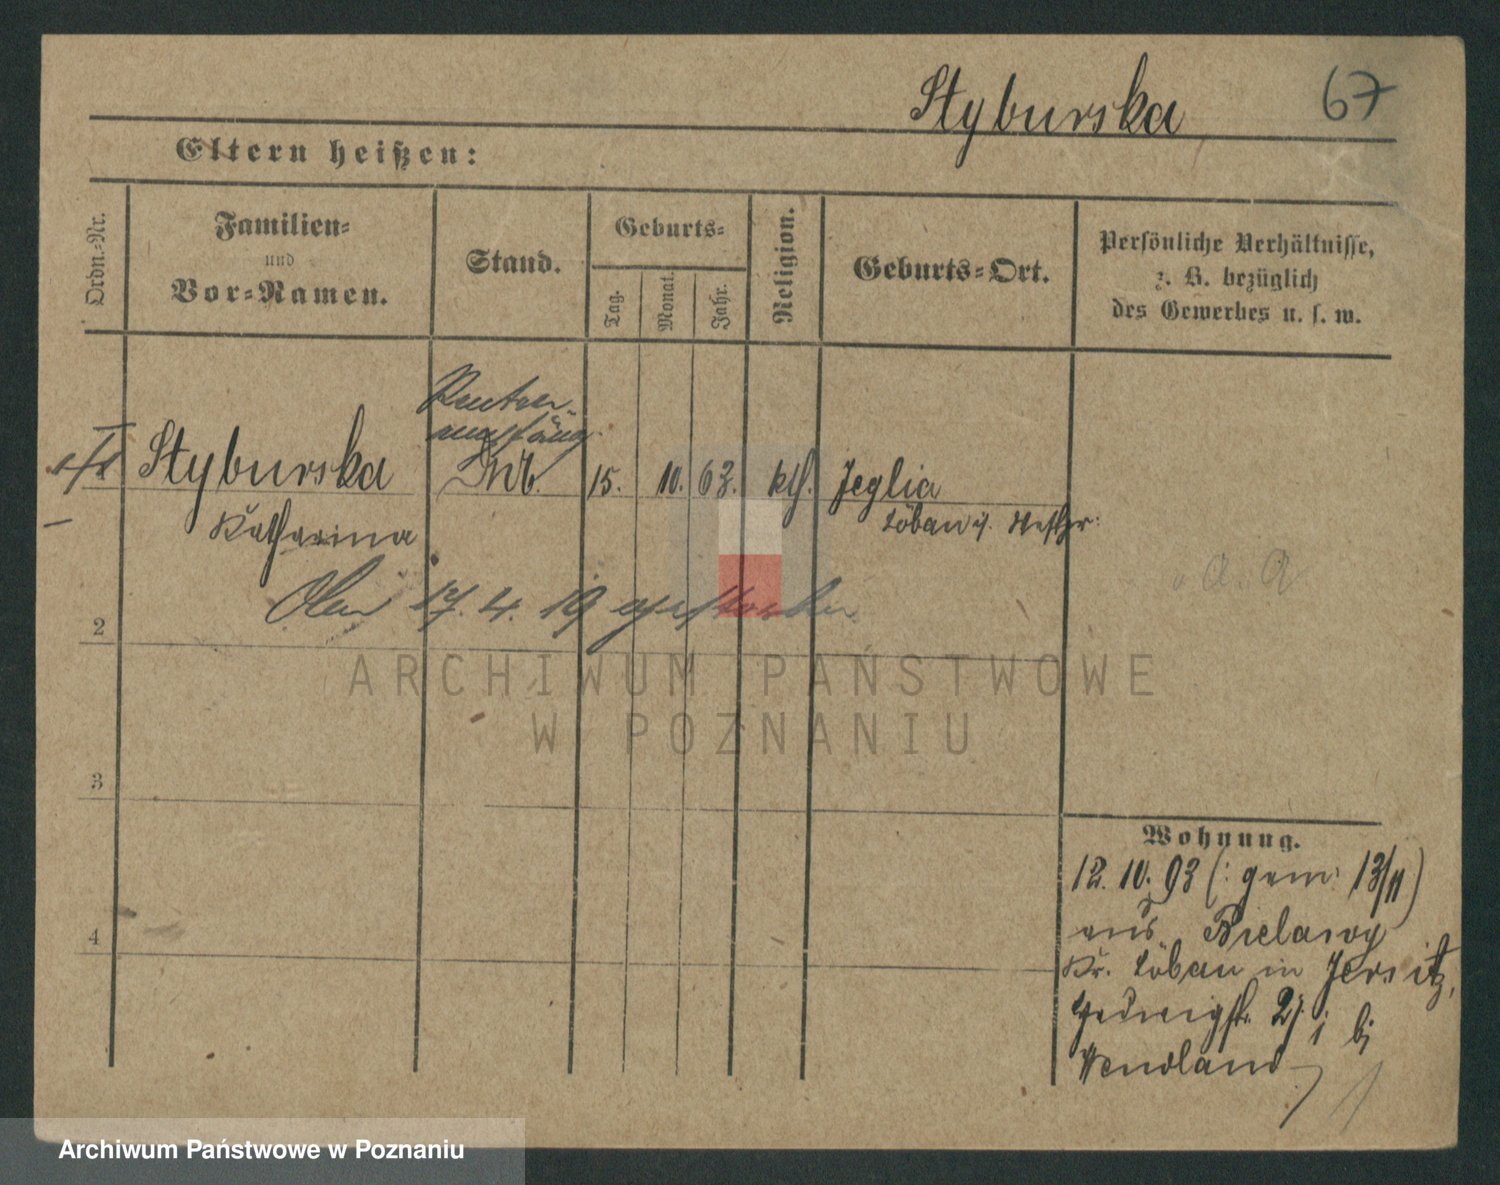 Styburska 67
Eltern heißen:
Ordn.-Nr.
Familien-
und
Vor-Namen.
Stand.
Geburts-
Tag.
Monat.
Jahr.
Religion.
Geburts-Ort.
Persönliche Verhältnisse,
z. B. bezüglich
des Gewerbes u. s. w.
Renten-
empfäng.
Styburska 15. 10. 63. kth. Jeglia
Katharina Löbau i/. Westpr.
Am 17. 4. 19 gestorben
2
ARCHIWUM PAŃSTWOWE
W POZNANIU
3
4
Wohnung.
12. 10. 93 (: gem: 13/11)
aus Bielawy
Kr. Löbau in Jersitz,
Hedwigstr. 27 bj
Wendland
Archiwum Państwowe w Poznaniu